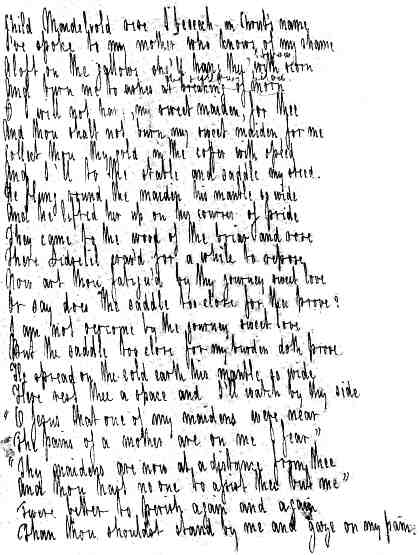 Child Maidelvold dear I beseech in Christ's name
I've spoke to my mother who knows of my shame
Aloft on the gallows she'll hang thee with scorn
And burn me to ashes at breaking of morn
I will not hang my sweet maiden for thee
And thou shalt not burn my sweet maiden for me
Collect thou thy gold in the coffer with speed
And I'll to the stable and saddle my steed.
He flung round the maiden his mantle so wide
And he lifted her up on his courser of pride
They came to the wood of the briar and rose
There Sidselil craved for a while to repose
Now art thou fatigu'd by thy journey sweet love
Or say does the saddle too close for thee prove?
I am not o'ercome by the journey sweet love
But the saddle too close for my burden doth prove.
He spread on the cold earth his mantle so wide
Here rest thee a space and I'll watch by thy side
"O Jesus that one of my maidens were near
The pains of a mother are on me I fear"
"Thy maidens are now at a distance from thee
And thou hast no one to assist thee but me"
Twere better to perish again and again
Than thou shouldst stand by me and gaze on my pain.